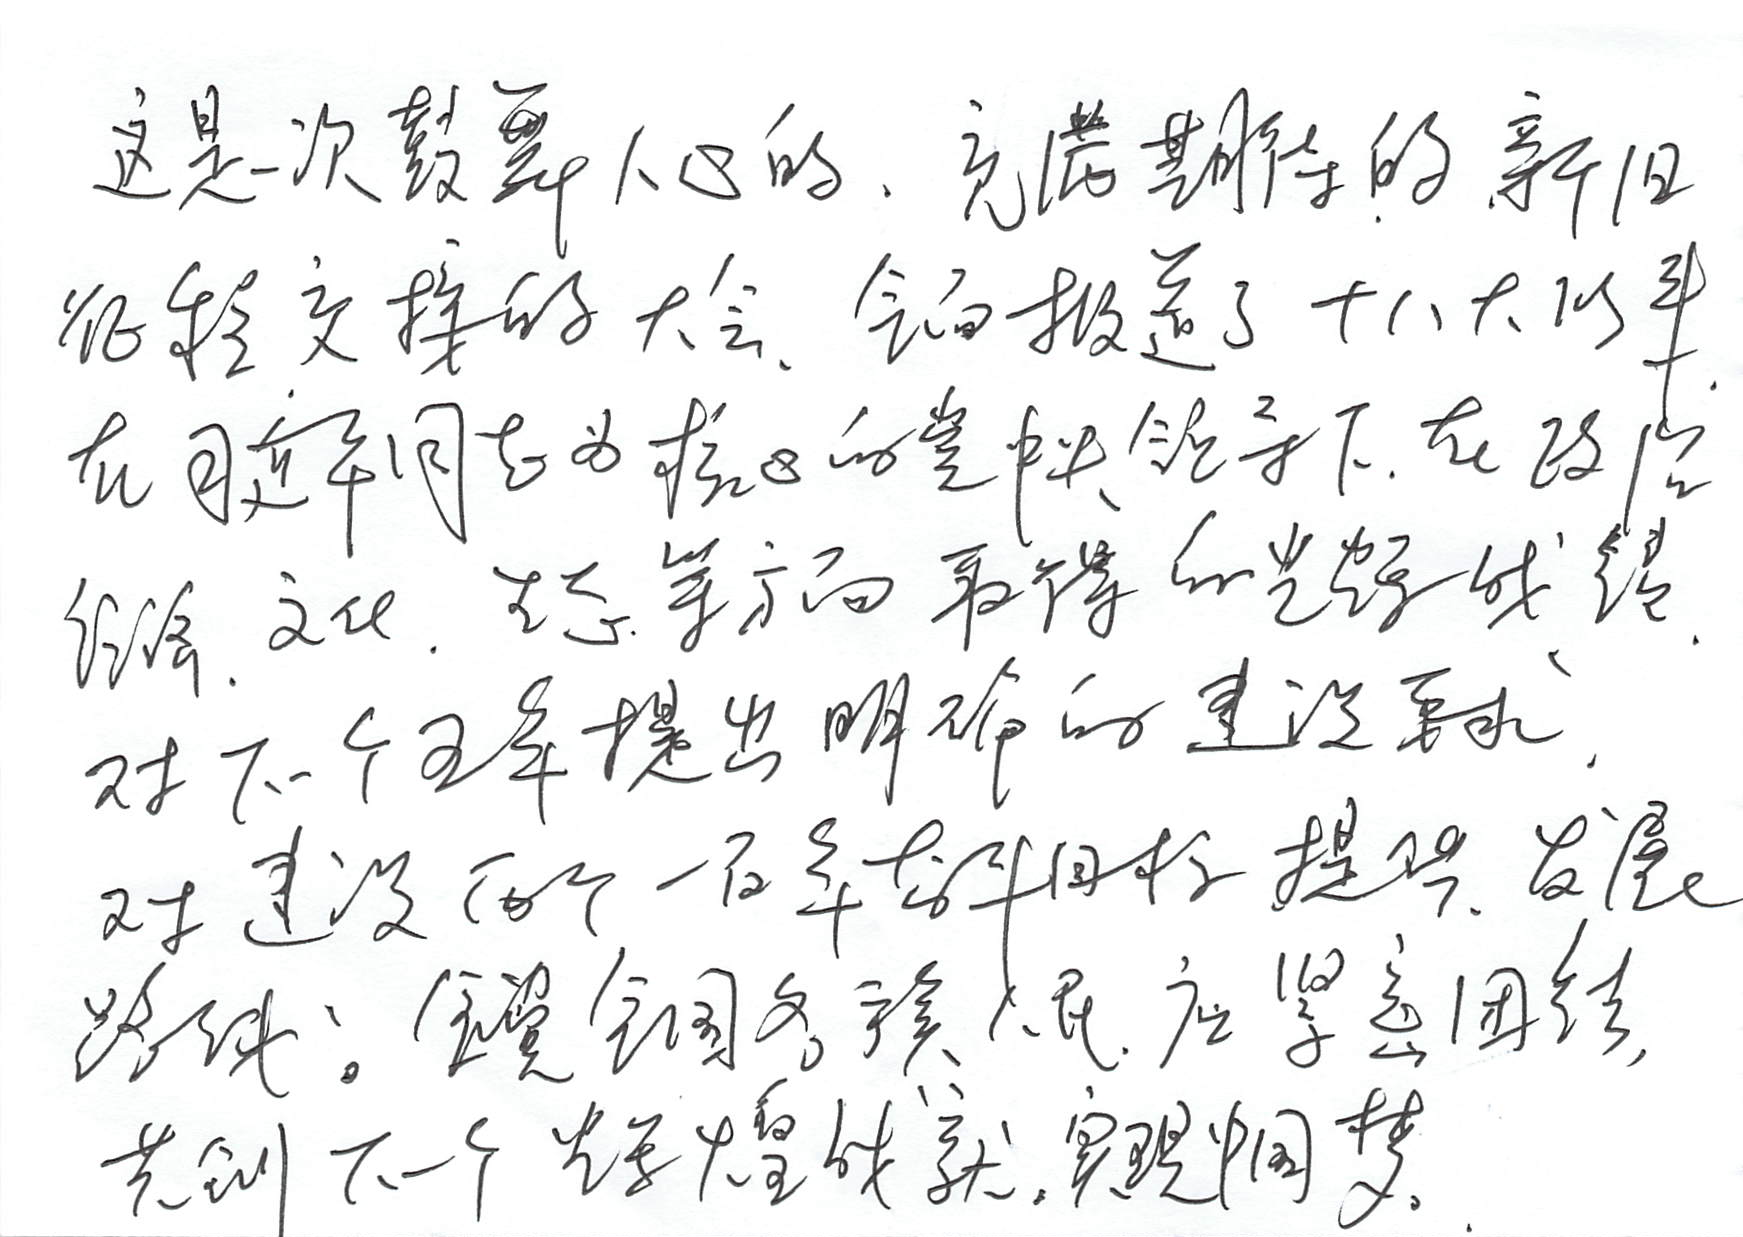 这是一次鼓舞人心的、充满期待的新旧
征程交接的大会、全面报道了十八大以来.
在习近平同志为核心的党中央领导下.在政治
经济.文化.生态等方面取得的光辉成绩.
对下一个五年提出明确的建设要求,
对建设两个一百年奋斗目标提供发展
路线。全党全国各族人民.应紧密团结,
共创下一个光辉煌成就.实现中国梦。